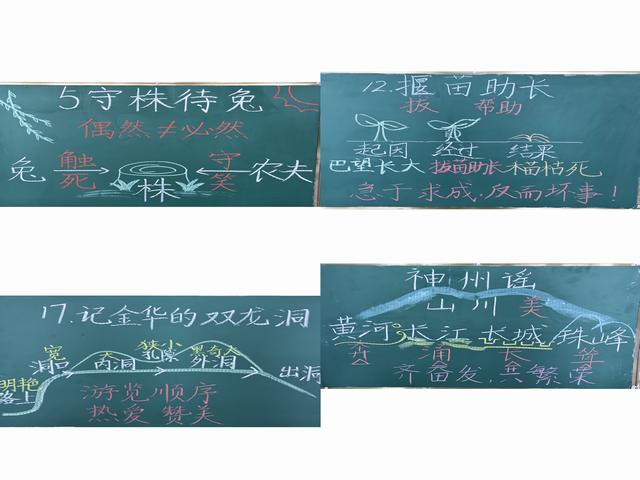 5守株待兔
偶然≠必然
兔 触死 株 守笑 农夫
12.揠苗助长
拔 帮助
起因 经过 结果
巴望长大 拔苗助长 禾苗枯死
急于求成,反而坏事!
17.记金华的双龙洞
宽 大 狭小 黑奇大
洞口 内洞 孔隙 外洞 出洞
明艳
路上
游览顺序
热爱 赞美
神州谣
山川美
黄河 长江 长城 珠峰
奔 涌 长 耸
齐奋发,共繁荣